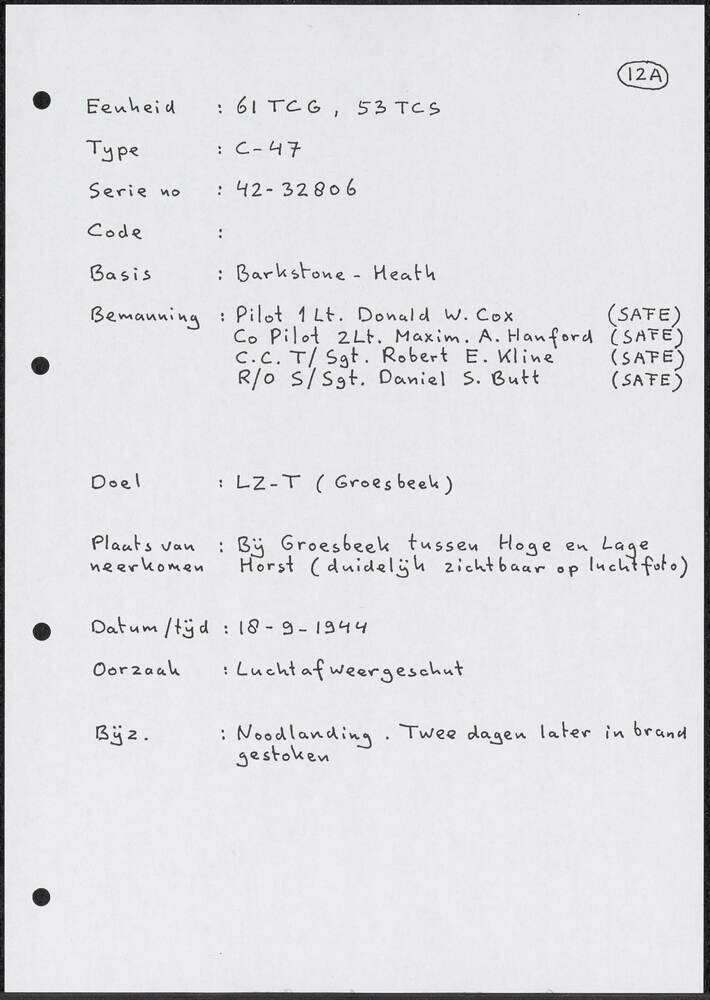 12A
Eenheid : 61 TCG, 53 TCS
Type : C-47
Serie no : 42-32806
Code :
Basis : Barkstone - Heath
Bemanning : Pilot 1 Lt. Donald W. Cox (SAFE)
Co Pilot 2Lt. Maxim. A. Hanford (SAFE)
C.C. T/Sgt. Robert E. Kline (SAFE)
R/O S/Sgt. Daniel S. Butt (SAFE)
Doel : LZ-T (Groesbeek)
Plaats van : Bij Groesbeek tussen Hoge en Lage
neerkomen Horst (duidelijk zichtbaar op luchtfoto)
Datum/tijd : 18-9-1944
Oorzaak : Luchtafweergeschut
Bijz. : Noodlanding. Twee dagen later in brand
gestoken